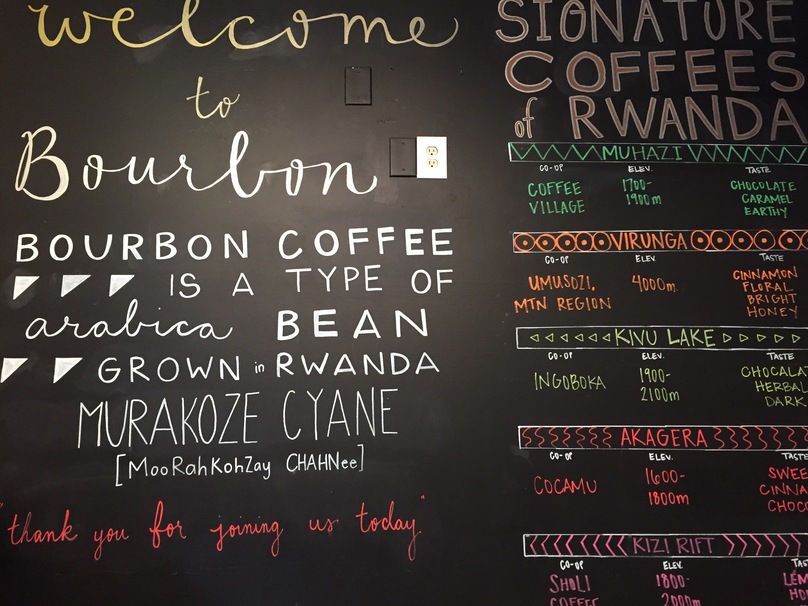 welcome
to
Bourbon
BOURBON COFFEE
IS A TYPE OF
arabica BEAN
GROWN in RWANDA
MURAKOZE CYANE
[MooRahKohZay CHAHNee]
"thank you for joining us today"
SIGNATURE
COFFEES
of RWANDA
MUHAZI
CO-OP ELEV. TASTE
COFFEE VILLAGE
1700-
1900m
CHOCOLATE
CARAMEL
EARTHY
VIRUNGA
CO-OP ELEV. TASTE
UMUSOZI,
MTN REGION
4000m.
CINNAMON
FLORAL
BRIGHT
HONEY
KIVU LAKE
CO-OP ELEV. TASTE
INGOBOKA
1900-
2100m
CHOCALAT
HERBAL
DARK
AKAGERA
CO-OP ELEV. TASTE
COCAMU
1600-
1800m
SWEE
CINNA
CHOCO
KIZI RIFT
CO-OP ELEV. TAS
SHOLI
COFFEE
1800-
2000m
LEM
HO